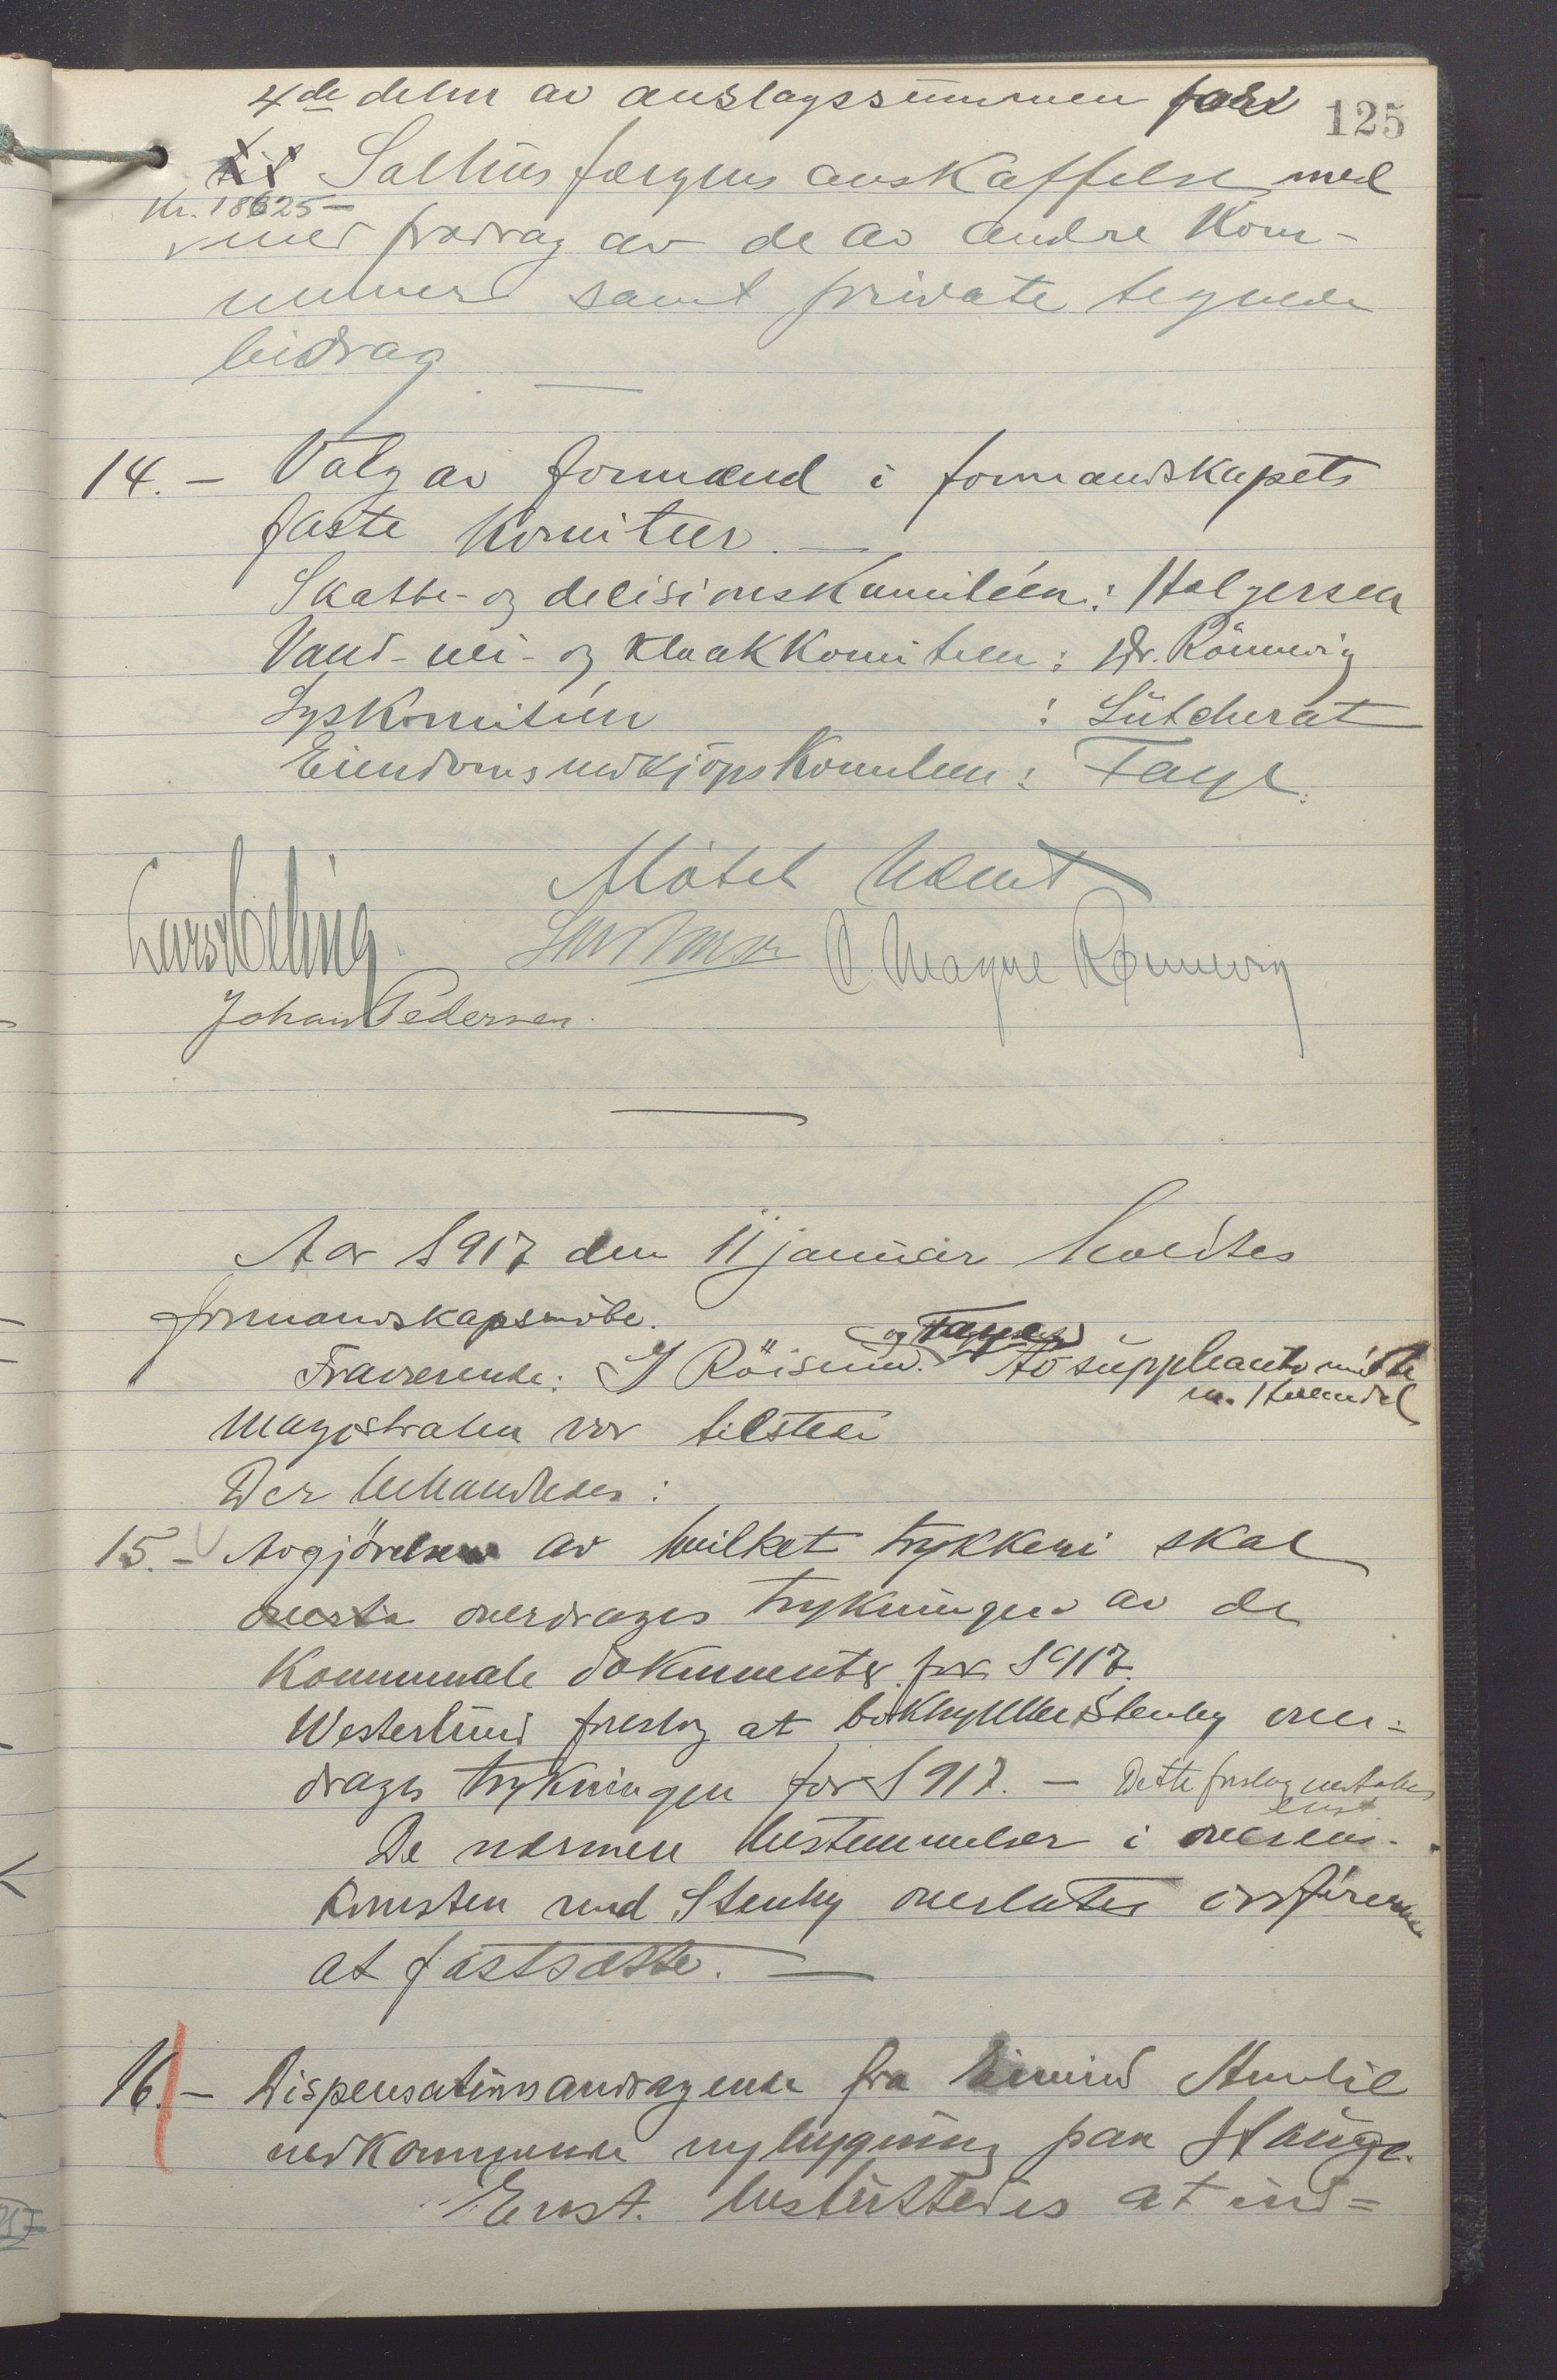 125
4de delen av anslagssummen for
til Salhusfærgens anskaffelse med
Kr. 18625 —
med fradrag av de av andre kom-
muner samt private tegnede
bidrag
14. — Valg av formænd i formandskapets
faste komiteer. —
Skatte- og decisionskomitéen: Holgersen
Vand- vei- og kloakkomiteen: Dr. Rönnevig
Lyskomitéen : Lütcherat
Eiendomsindkjöpskomiteen: Faye.
Mötet hævet
Lars Meling
O. Magne Rønnevig
Johan Pedersen.
Aar 1917 den 11 januar holdtes
formandskapsmöte.
og Faye
Fraværende: J Röisund. Av suppleanter mötte
Magistraten var tilstede
Der behandledes:
15. — Avgjörelse av hvilket trykkeri skal
overdrages trykningen av de
kommunale dokumenter for 1917.
Westerlund foreslog at boktrykker Stenby over=
drages trykningen for 1917. — Dette forslag vedtokes
enst
De nærmere bestemmelser i overens-
komsten med Stenby overlates ordföreren
at fastsætte. —
16. — Dispensationsandragende fra Eivind Amlie
vedkommende nybygning paa Hauge.
Enst. besluttedes at ind=